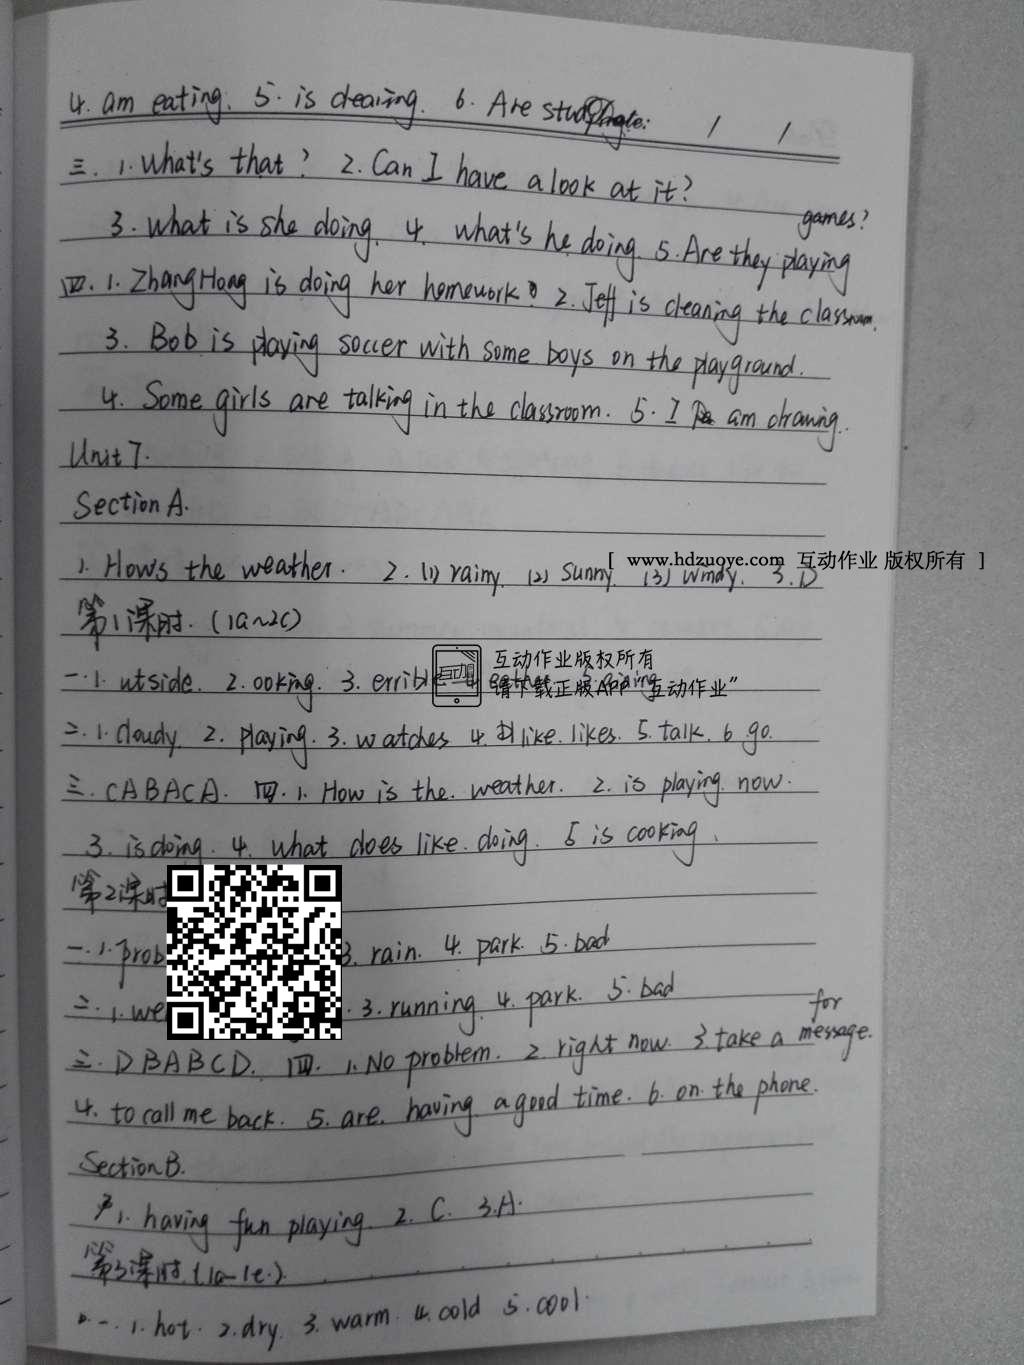 4. am eating. 5. is cleaning. 6. Are
三. 1. What's that? 2. Can I have a look at it?
games?
3. What is she doing. 4. what's he doing. 5. Are they playing
四. 1. Zhang Hong is doing her homework. 2. Jeff is cleaning the classroom.
3. Bob is playing soccer with some boys on the playground.
4. Some girls are talking in the classroom. 5. I am drawing.
Unit 7.
Section A.
1. Hows the weather. 2. (1) rainy. (2) Sunny. (3) windy. 3. D
[ www.hdzuoye.com 互动作业 版权所有 ]
第1课时. (1a~2c)
一. 1. utside. 2. ooking. 3. errible
互动作业版权所有
请下载正版APP“互动作业”
二. 1. cloudy. 2. playing. 3. watches 4. like. likes. 5. talk. 6 go.
三. CABACA. 四. 1. How is the. weather. 2. is playing. now.
3. is doing. 4. what does like. doing. 5 is cooking.
第2课时
一. 1. prob 3. rain. 4. park. 5. bad
二. 1. we 3. running. 4. park. 5. bad
for
三. DBABCD. 四. 1. No problem. 2. right now. 3. take a message.
4. to call me back. 5. are. having a good time. 6. on the phone.
Section B.
1. having fun playing. 2. C. 3. A.
第3课时. (1a-1e.)
一. 1. hot. 2. dry. 3. warm. 4. cold 5. cool.